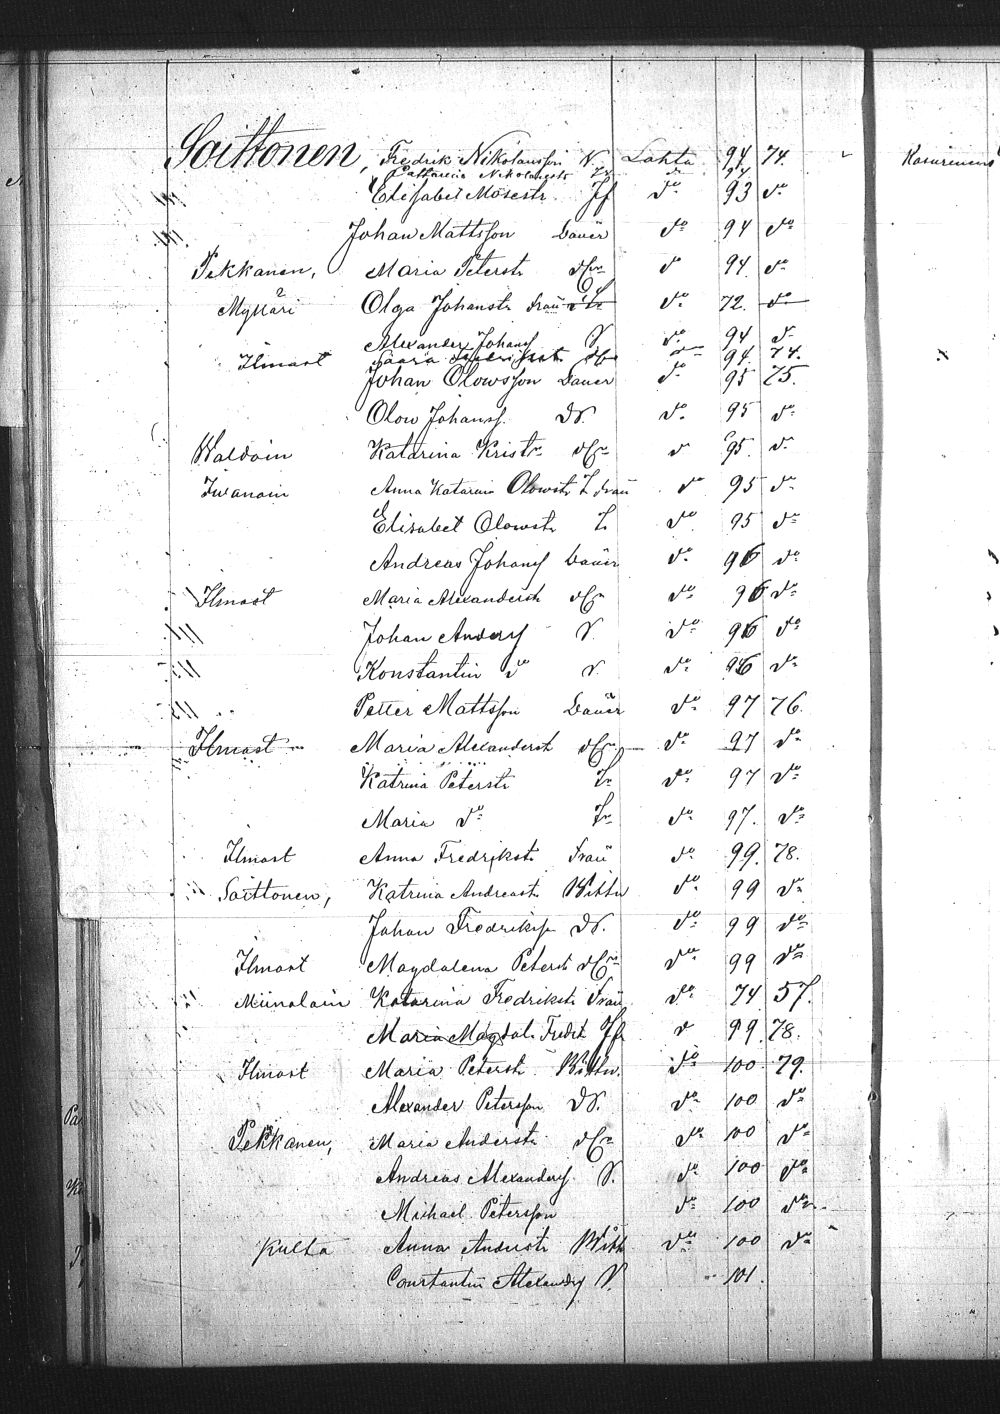 Soittonen, Fredrik Nikolausson N. Lahta 94 74.
Catharina Nikolausdr Tr do 94
Elisabet Mosesdr. Jf do 93 do
Johan Mattsson Bauer do 94 do
Pekkanen, Maria Petersdr do 94. do
Mykkäri Olga Johansdr Frau do 72. do
Alexander Johansf S. do 94 do
Ilmast Saara Fredriksdr. do 94. 74.
Johan Olowsson Bauer do 95 75.
Olow Johansf. dS. do 95 do
Waldoin Katarina Kristr do 95. do
Iwanain Anna Katarina Olowsdr T. Frau do 95 do
Elisabet Olowsdr T. do 95 do
Andreas Johansf Bauer do 96 do
Ilmast Maria Alexandersdr do 96 do
Johan Andersf S. do 96 do
Konstantin do S. do 96 do
Petter Mattsson Bauer do 97 76.
Ilmast Maria Alexandersdr do 97 do
Katrina Petersdr Tr do 97 do
Maria do Tr do 97. do
Ilmast Anna Fredriksdr. Frau do 99. 78.
Soittonen, Katrina Andreasdr. Wittw do 99 do
Johan Fredriksf dS. do 99 do
Ilmast Magdalena Petersdr do 99 do
Miinalain Katarina Fredriksdr Frau do 74 57.
Maria Magdal. Fredr Jf do 99. 78.
Ilmast Maria Petersdr. Wittw. do 100 79.
Alexander Petersson dS. do 100 do
Pekkanen, Maria Andersdr do 100 do
Andreas Alexandersf. S. do 100 do
Michael Petersson do 100 do
Kulta Anna Andersdr Wittw do 100 do
Constantin Alexandersf S. 101.